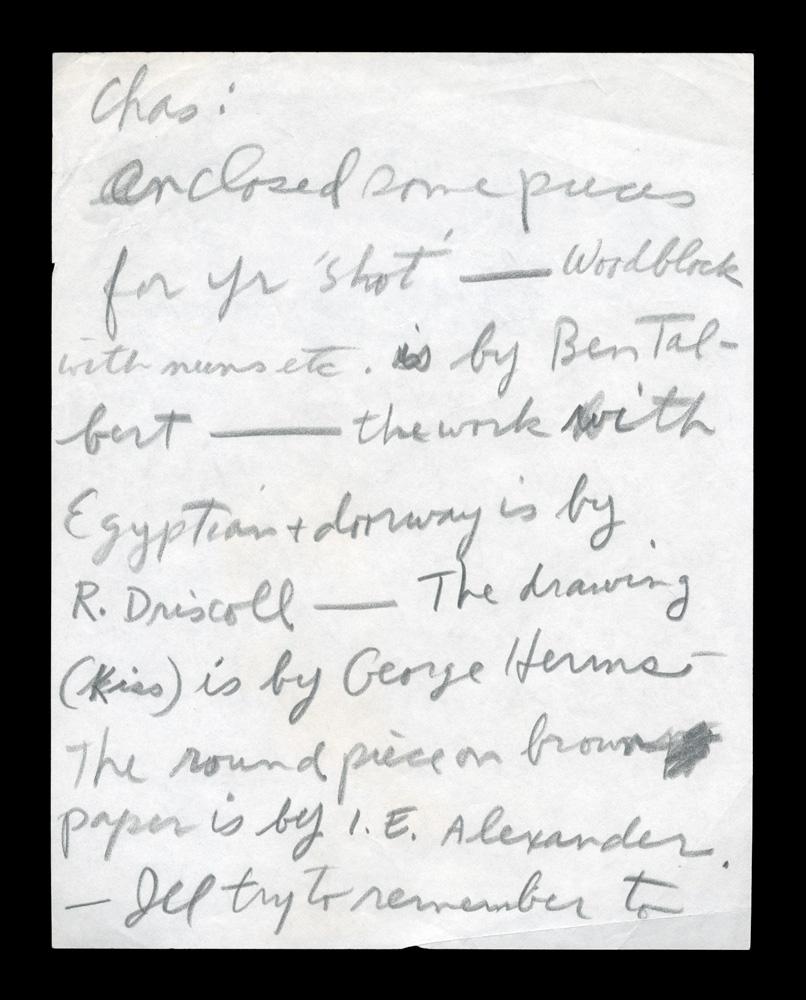 Chas:
Enclosed some pieces
for yr 'shot' — Woodblock
with nuns etc. is by Ben Tal-
bert — the work with
Egyptian + doorway is by
R. Driscoll — The drawing
(Kiss) is by George Herms –
The round piece on brown
paper is by I. E. Alexander.
— Ill try to remember to